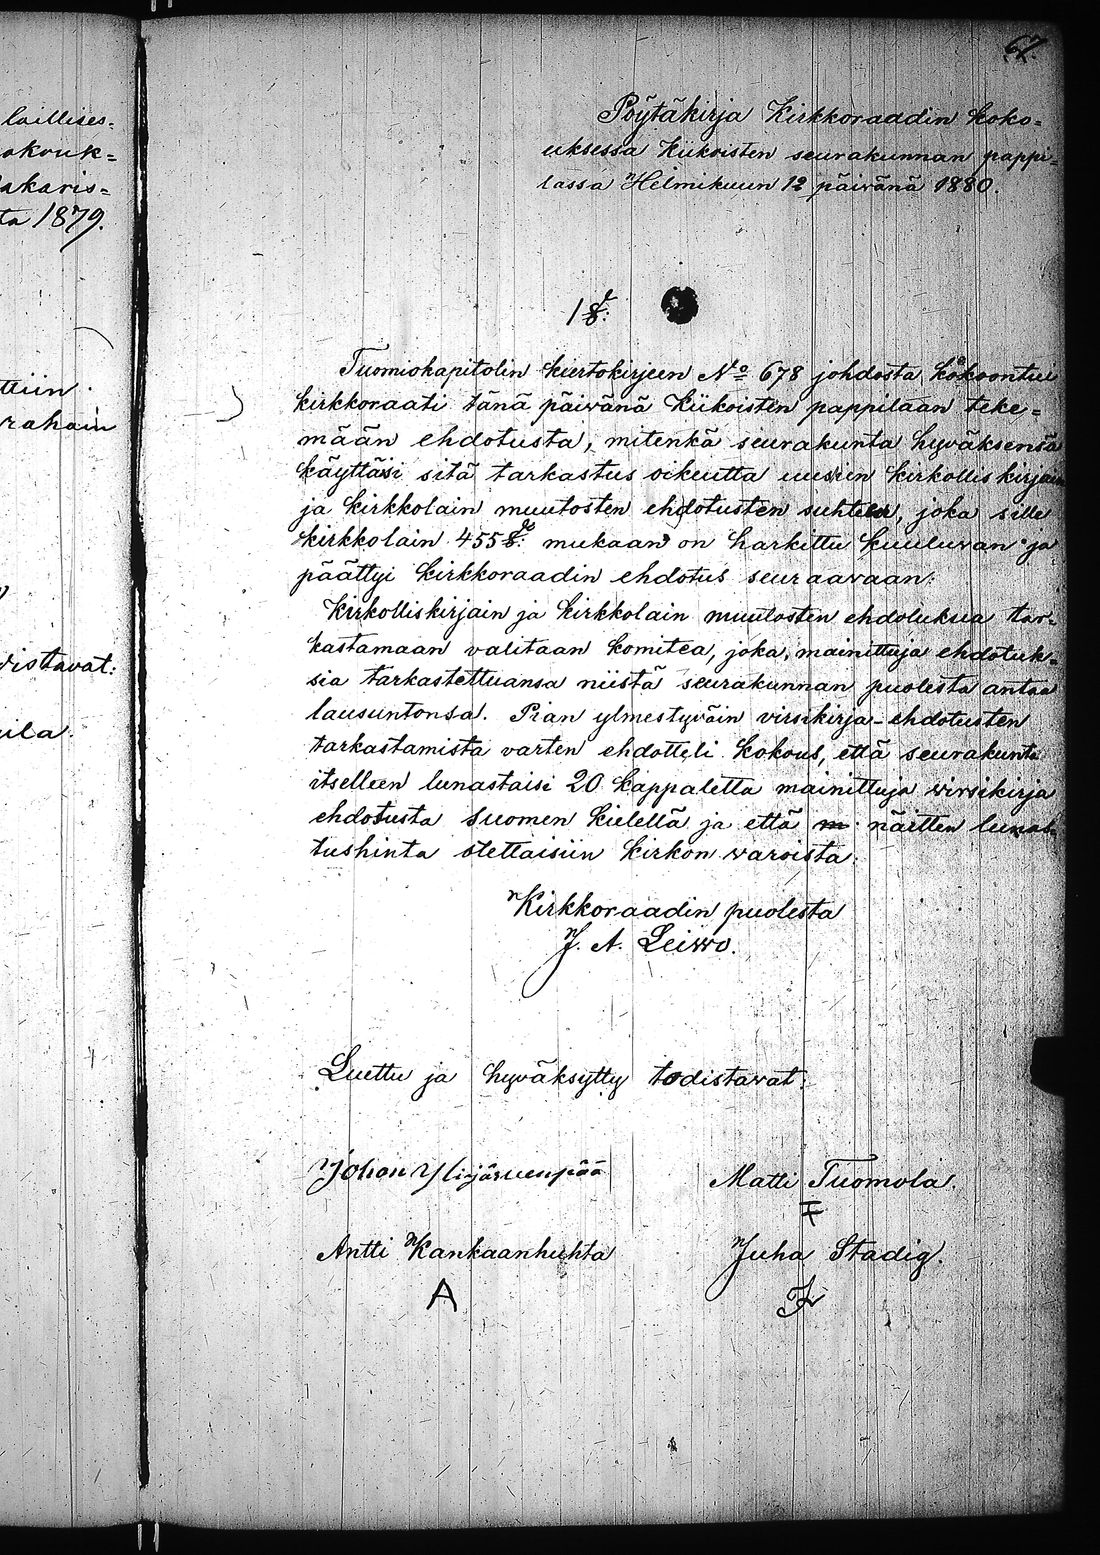 67.
laillises=
okouk=
akaris=
ta 1879.
ttiin
rahain
distavat:
ila.
Pöytäkirja Kirkkoraadin koko=
uksessa Kiikoisten seurakunnan pappi=
lassa Helmikuun 12 päivänä 1880.
1 §:
Tuomiokapitolin kiertokirjeen No 678 johdosta kokoontui
kirkkoraati tänä päivänä Kiikoisten pappilaan teke=
mään ehdotusta, mitenkä seurakunta hyväksensä
käyttäisi sitä tarkastus oikeutta uusien kirkolliskirjain
ja kirkkolain muutosten ehdotusten suhteen, joka sille
kirkkolain 455 §: mukaan on harkittu kuuluvan ja
päättyi kirkkoraadin ehdotus seuraavaan:
Kirkolliskirjain ja kirkkolain muutosten ehdotuksia tar=
kastamaan valitaan komitea, joka, mainittuja ehdotuk=
sia tarkastettuansa niistä seurakunnan puolesta antaa
lausuntonsa. Pian ylmestyväin virsikirja-ehdotusten
tarkastamista varten ehdotteli kokous, että seurakunta
itselleen lunastaisi 20 kappaletta mainittuja wirsikirja
ehdotusta suomen kielellä ja että näitten lunas=
tushinta otettaisiin kirkon waroista.
Kirkkoraadin puolesta
J. A. Leiwo.
Luettu ja hyväksytty todistavat:
Johan Ylijärvenpää
Matti Tuomola.
Antti Kankaanhuhta
Juha Stadig.
A